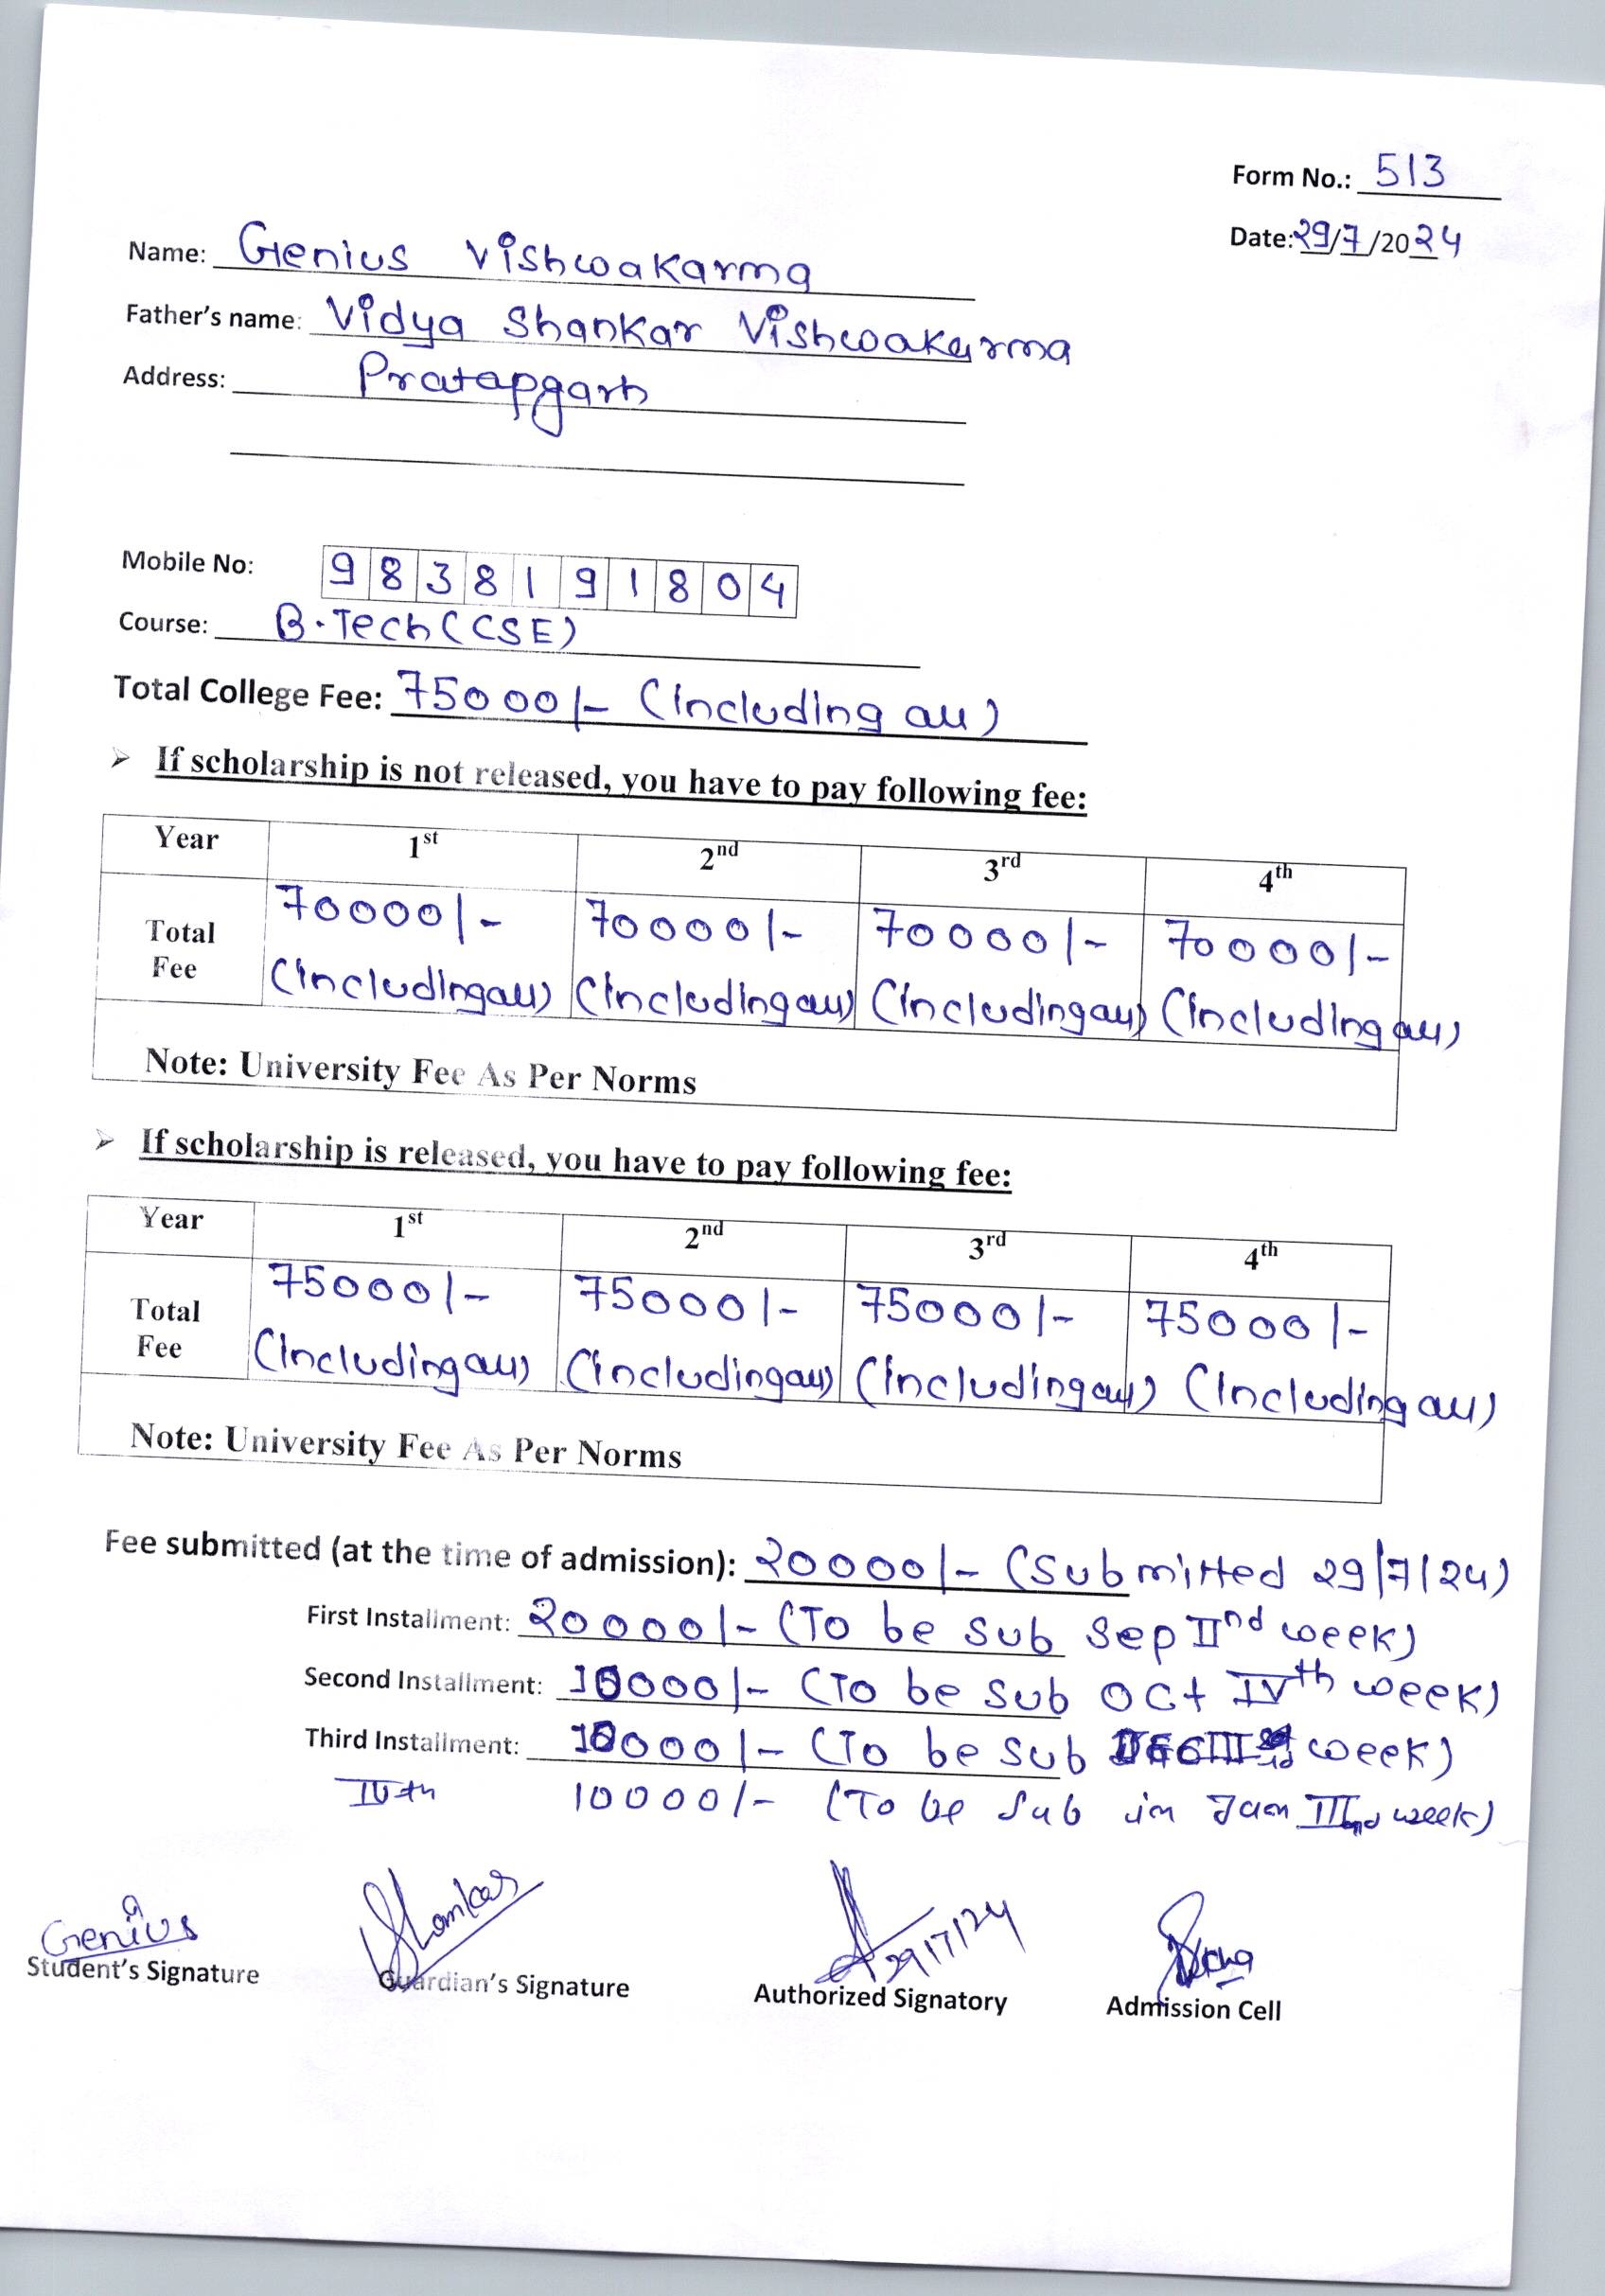 Form No.: 513
Date: 29/7/2024
Name: Genius Vishwakarma
Father's name: Vidya Shankar Vishwakarma
Address: Pratapgarh
Mobile No: 9838191804
Course: B.Tech (CSE)
Total College Fee: 75000/- (Including all)
➢ If scholarship is not released, you have to pay following fee:
Year 1st 2nd 3rd 4th
Total Fee 70000/- 70000/- 70000/- 70000/-
(Including all) (Including all) (Including all) (Including all)
Note: University Fee As Per Norms
➢ If scholarship is released, you have to pay following fee:
Year 1st 2nd 3rd 4th
Total Fee 75000/- 75000/- 75000/- 75000/-
(Including all) (Including all) (Including all) (Including all)
Note: University Fee As Per Norms
Fee submitted (at the time of admission): 20000/- (Submitted 29/7/24)
First Installment: 20000/- (To be sub Sep IInd week)
Second Installment: 10000/- (To be sub Oct IVth week)
Third Installment: 10000/- (To be sub week)
IVth 10000/- (To be sub in Jan week)
Genius
Student's Signature
Shankar
Guardian's Signature
29/7/24
Authorized Signatory
Admission Cell